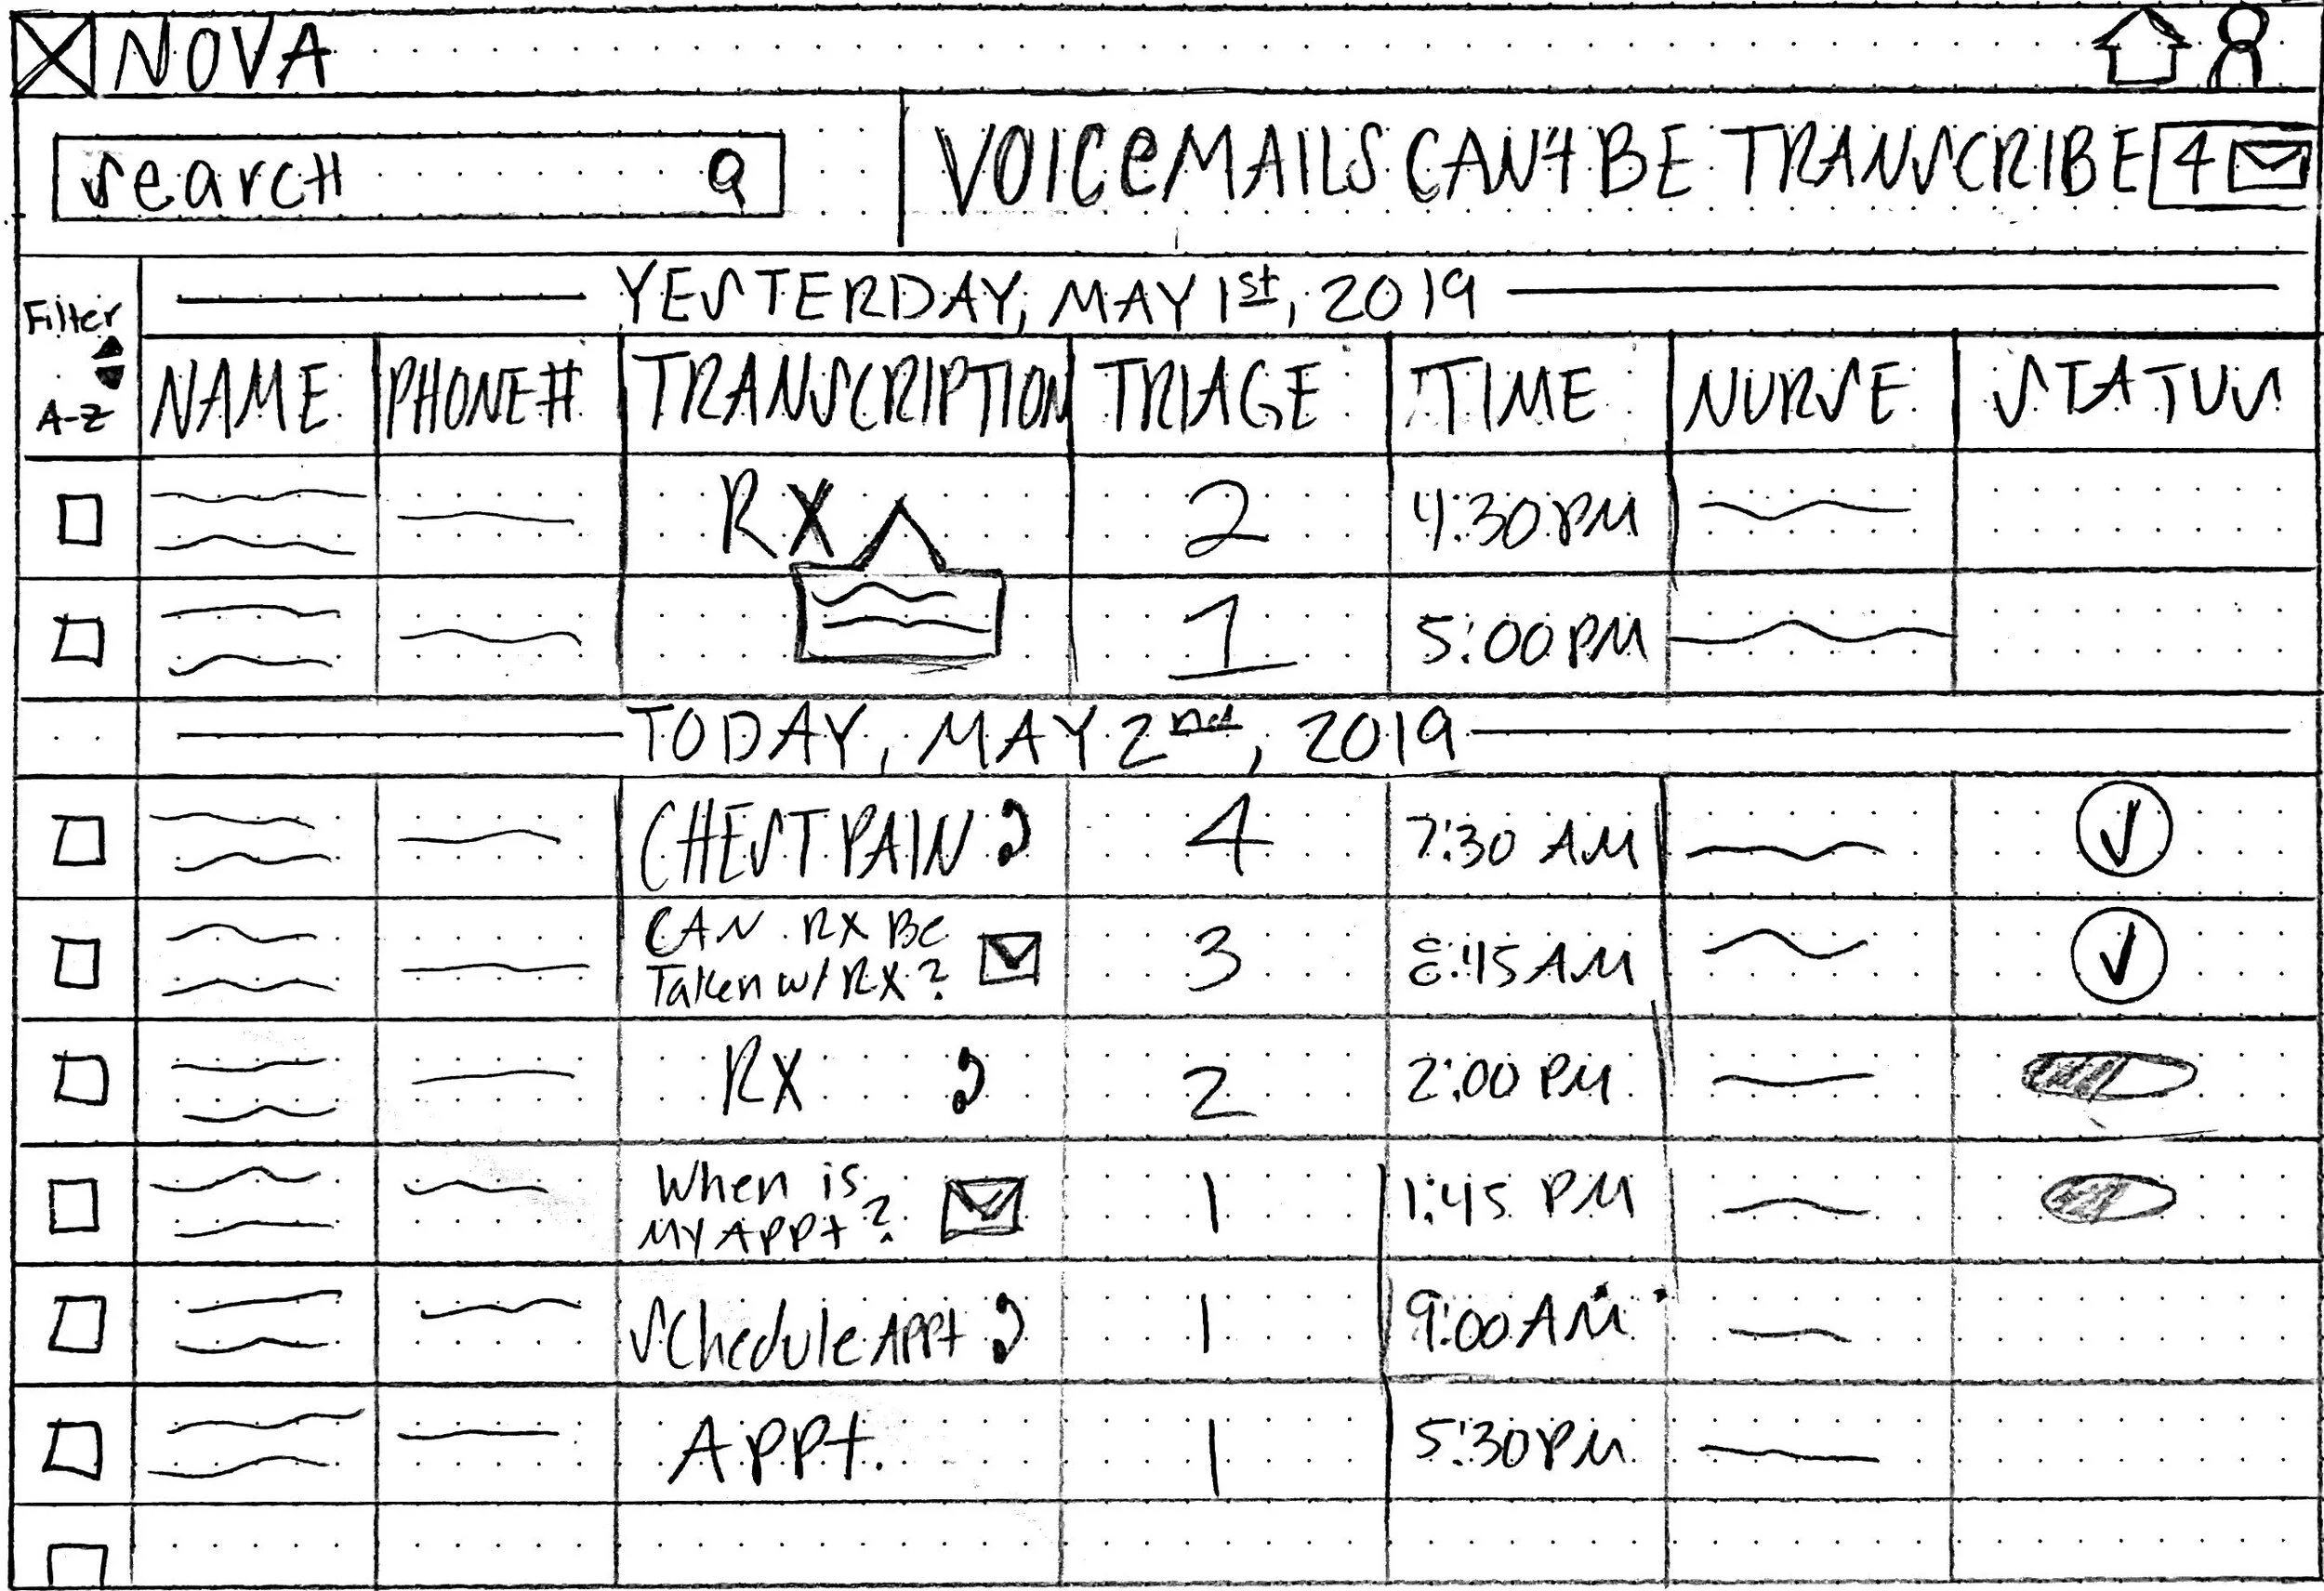 NOVA
Search
VOICEMAILS CAN'T BE TRANSCRIBE 4
YESTERDAY, MAY 1st, 2019
Filter
A-Z
NAME PHONE# TRANSCRIPTION TRIAGE TIME NURSE STATUS
RX 2 4:30 PM
1 5:00 PM
TODAY, MAY 2nd, 2019
CHEST PAIN 4 7:30 AM
CAN RX Be
Taken w/ RX? 3 8:45 AM
RX 2 2:00 PM
When is
MY APPt? 1 1:45 PM
Schedule APPt 1 9:00 AM
APPt. 1 5:30 PM